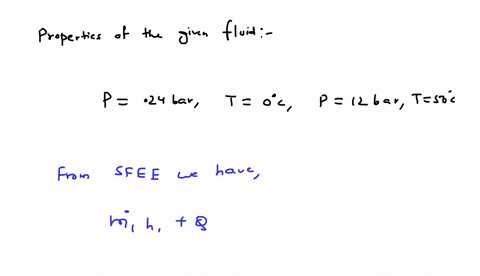 Properties of the given fluid:-
P = .24 bar, T = 0°c, P = 12 bar, T=50°c
From SFEE we have,
ṁ₁ h₁ + Q